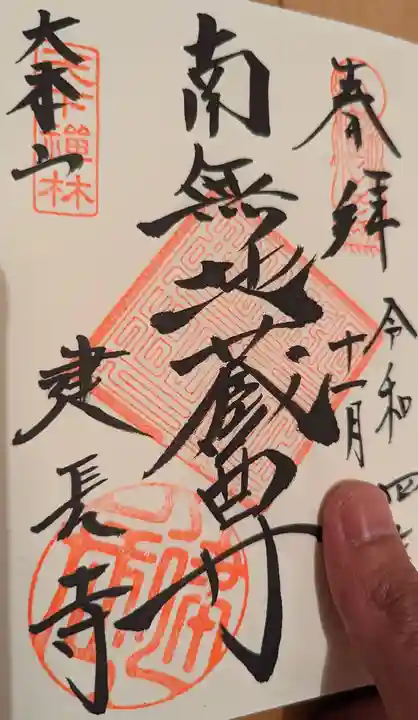 奉拝
令和四
十一月
南無地蔵尊
大本山
建長寺
禅林